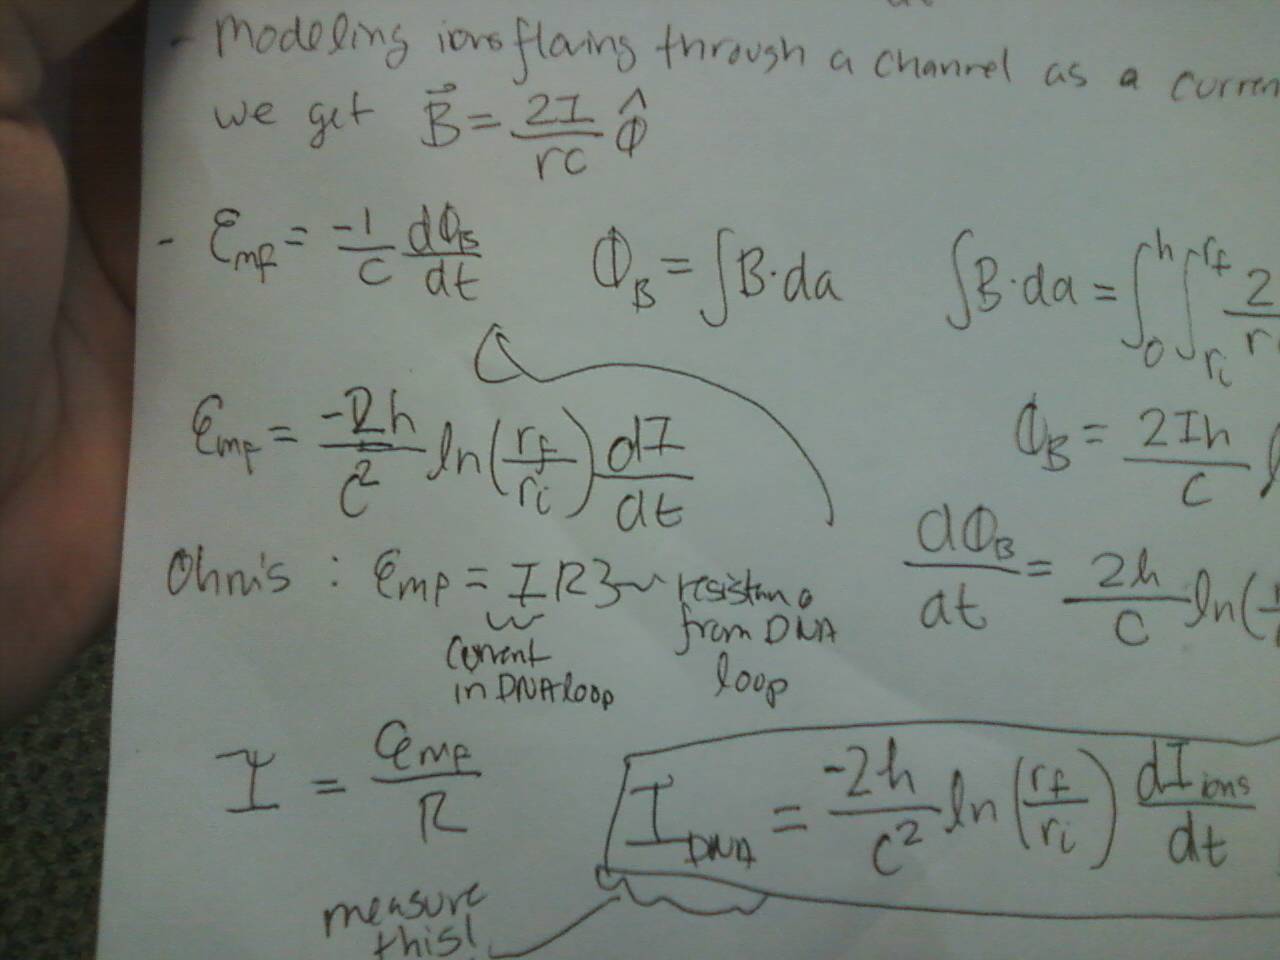 - Modeling ions flowing through a channel as a curren
we get B⃗ = 2I/rc Φ̂
- Ɛmf = -1/c dΦB/dt   ΦB = ∫B·da   ∫B·da = ∫₀ʰ∫ri^rf 2/r
Ɛmf = -2h/c² ln(rf/ri) dI/dt   ΦB = 2Ih/c
Ohm's : Ɛmf = IR}~ resistance from DNA loop   dΦB/dt = 2h/c ln(
current
in DNA loop
I = Ɛmf/R   IDNA = -2h/c² ln(rf/ri) dIions/dt
measure
this!